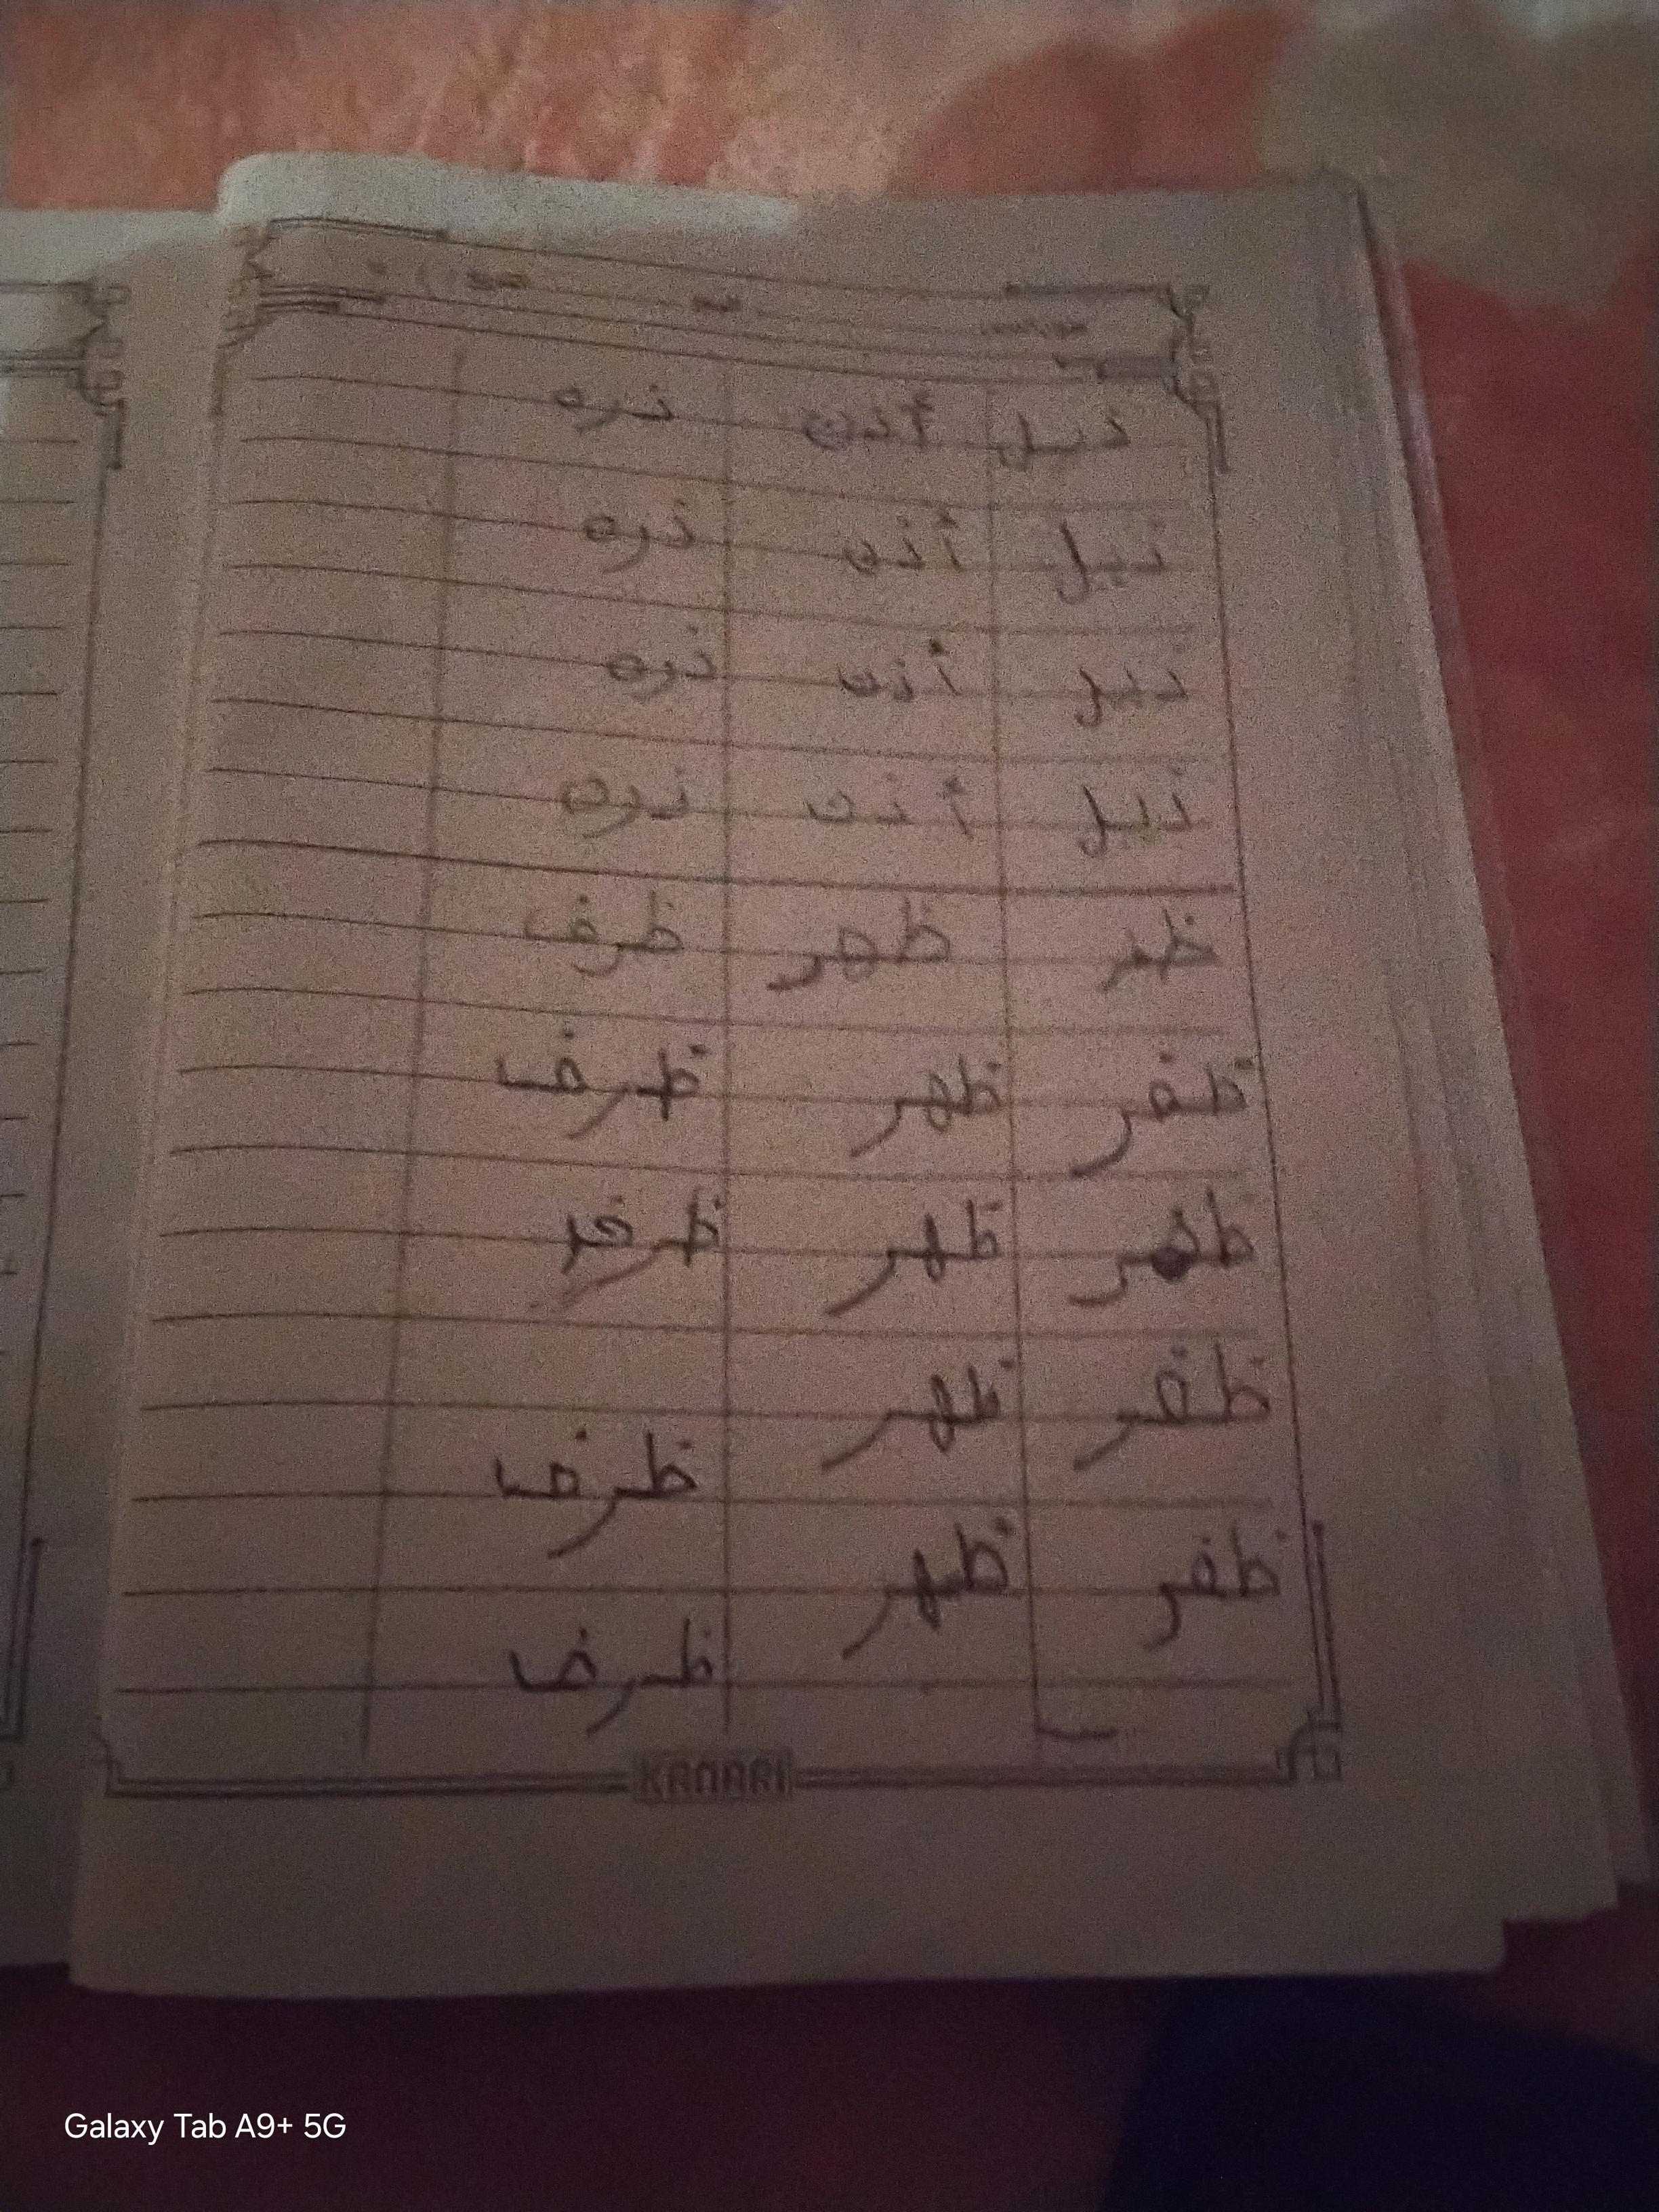 ذيل أذن ذره
ذيل أذن ذره
ذيل أذن ذره
ذيل أذن ذره
ظفر ظهر ظرف
ظفر ظهر ظرف
ظفر ظهر ظرف
ظفر ظهر
ظرف
ظفر ظهر
ظرف
KANARI
Galaxy Tab A9+ 5G